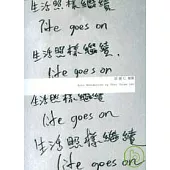 生活照樣繼續
life goes on
生活照樣繼續.
life goes on
生活照樣繼續
life goes on
生活照樣繼續
life goes on